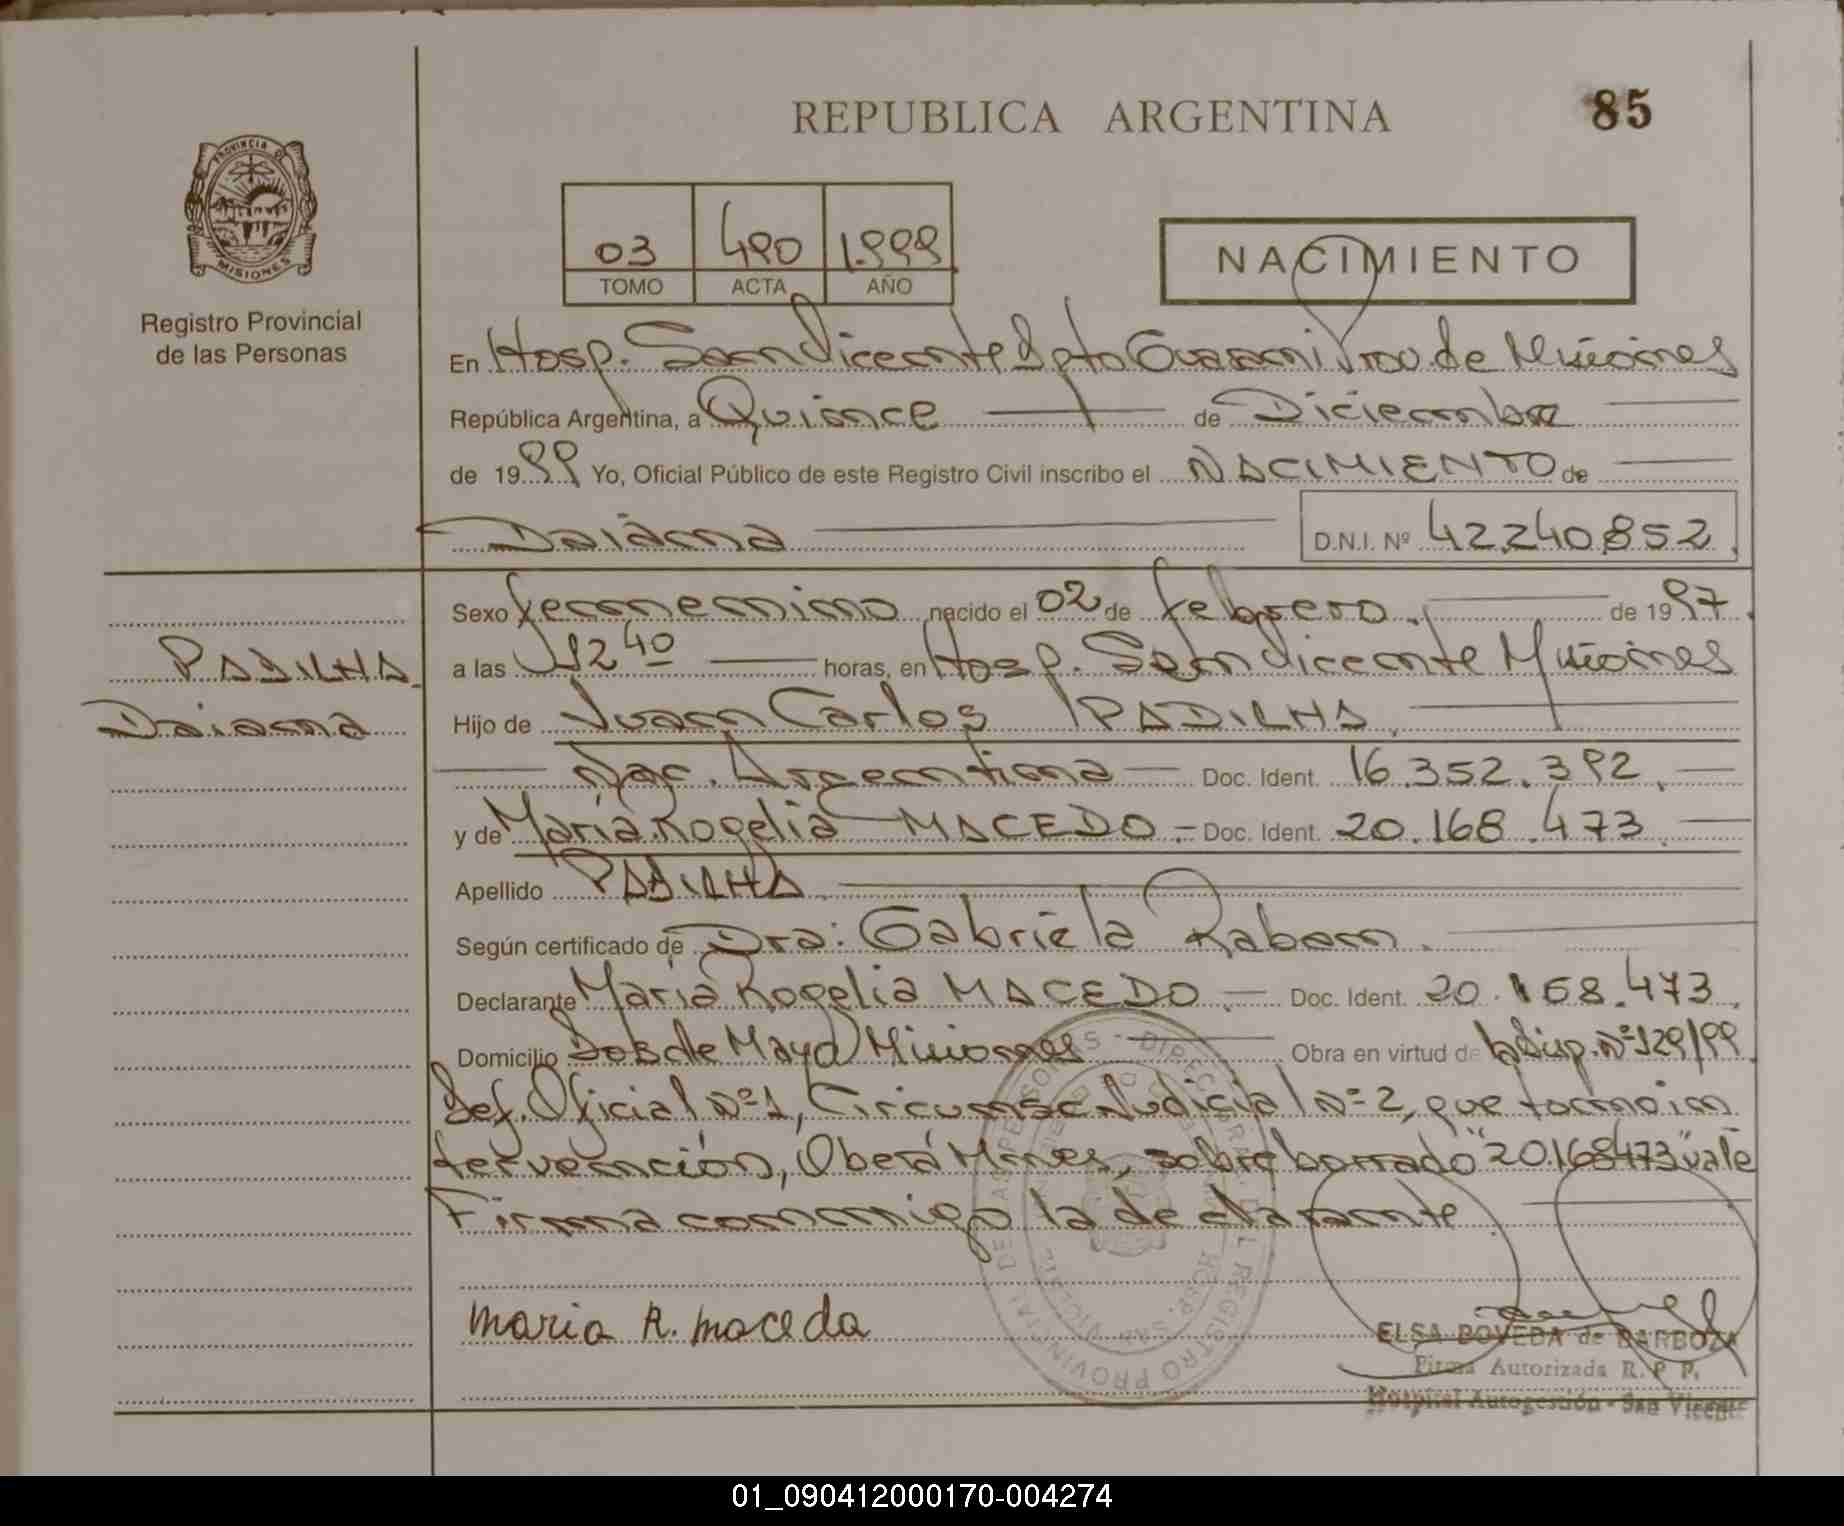 REPUBLICA ARGENTINA
85
PROVINCIA DE
MISIONES
Registro Provincial
de las Personas
03 490 1.999
TOMO ACTA AÑO
NACIMIENTO
En Hosp. San Vicente Dpto Guarani Prov. de Misiones
República Argentina, a Quince de Diciembre
de 1999 Yo, Oficial Público de este Registro Civil inscribo el NACIMIENTO de
Daiana
D.N.I. Nº 42.240.852
Sexo femenino nacido el 02 de febrero de 1997
a las 12 40 horas, en Hosp. San Vicente Misiones
PADILHA
Daiana
Hijo de Juan Carlos PADILHA
Nac. Argentina Doc. Ident. 16.352.392
y de Maria Rogelia MACEDO Doc. Ident. 20.168.473
Apellido PADILHA
Según certificado de Dra: Gabriela Raban
Declarante Maria Rogelia MACEDO Doc. Ident. 20.168.473
Domicilio Dos de Mayo Misiones Obra en virtud de Disp. Nº 129/99
Def. Oficial Nº 1, Circunsc Judicial Nº 2, que tomo in
tervención, Oberá Mnes, sobre borrado "20.168473" vale
Firma conmigo la declarante
Maria R. macedo
ELSA BOVEDA de BARBOZA
Firma Autorizada R. P. P.
Hospital Autogestión - San Vicente
01_090412000170-004274